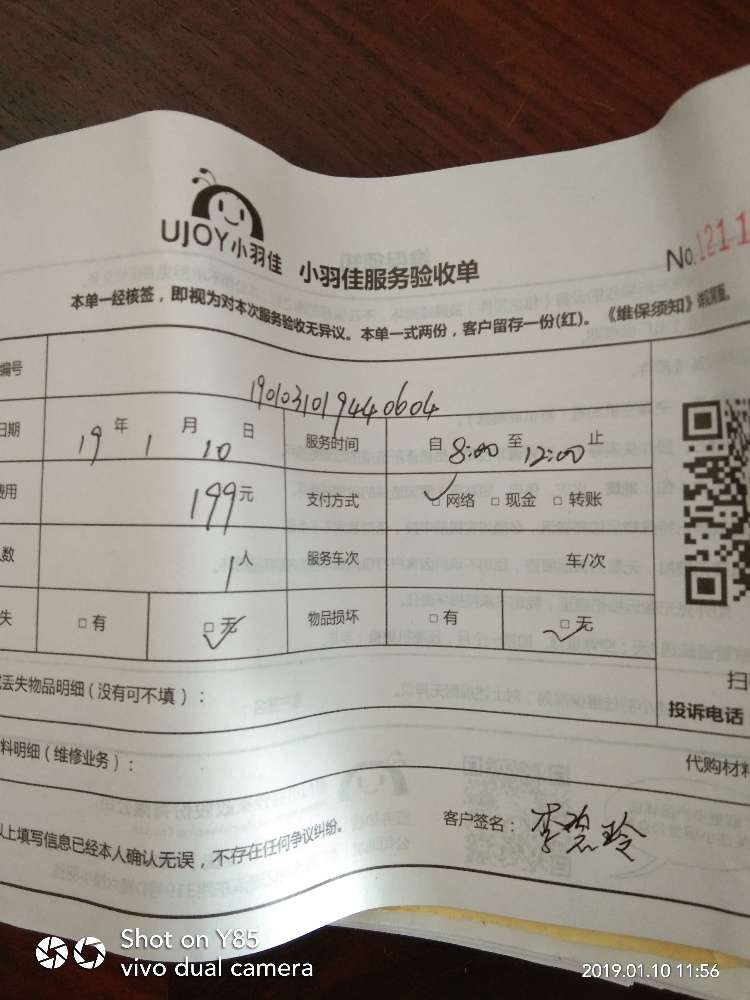 UJOY小羽佳 小羽佳服务验收单
No.121-1
本单一经核签，即视为对本次服务验收无异议。本单一式两份，客户留存一份(红)。《维保须知》
编号 1901031019440604
日期 19年1月10日 服务时间 自8:00至12:00止
费用 199元 支付方式 ✓□网络 □现金 □转账
人数 1人 服务车次 车/次
失 □有 □无✓ 物品损坏 □有 □无✓
丢失物品明细（没有可不填）：
扫
投诉电话
料明细（维修业务）：
代购材料
以上填写信息已经本人确认无误，不存在任何争议纠纷。
客户签名：
Shot on Y85
vivo dual camera
2019.01.10 11:56